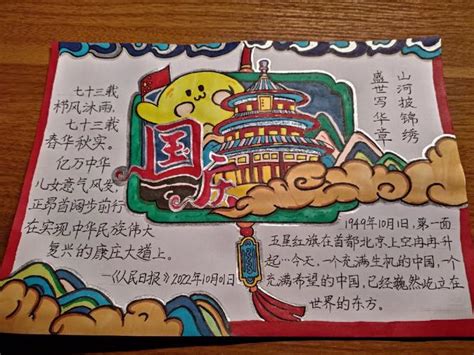 七十三载
栉风沐雨,
七十三载
春华秋实。
亿万中华
儿女意气风发
正昂首阔步前行
在实现中华民族伟大
复兴的康庄大道上。
—《人民日报》2022年10月01日
国庆
山河披锦绣
盛世写华章
1949年10月1日,第一面
五星红旗在首都北京上空冉冉升
起…今天,一个充满生机的中国,一个
充满希望的中国,已经巍然屹立在
世界的东方。